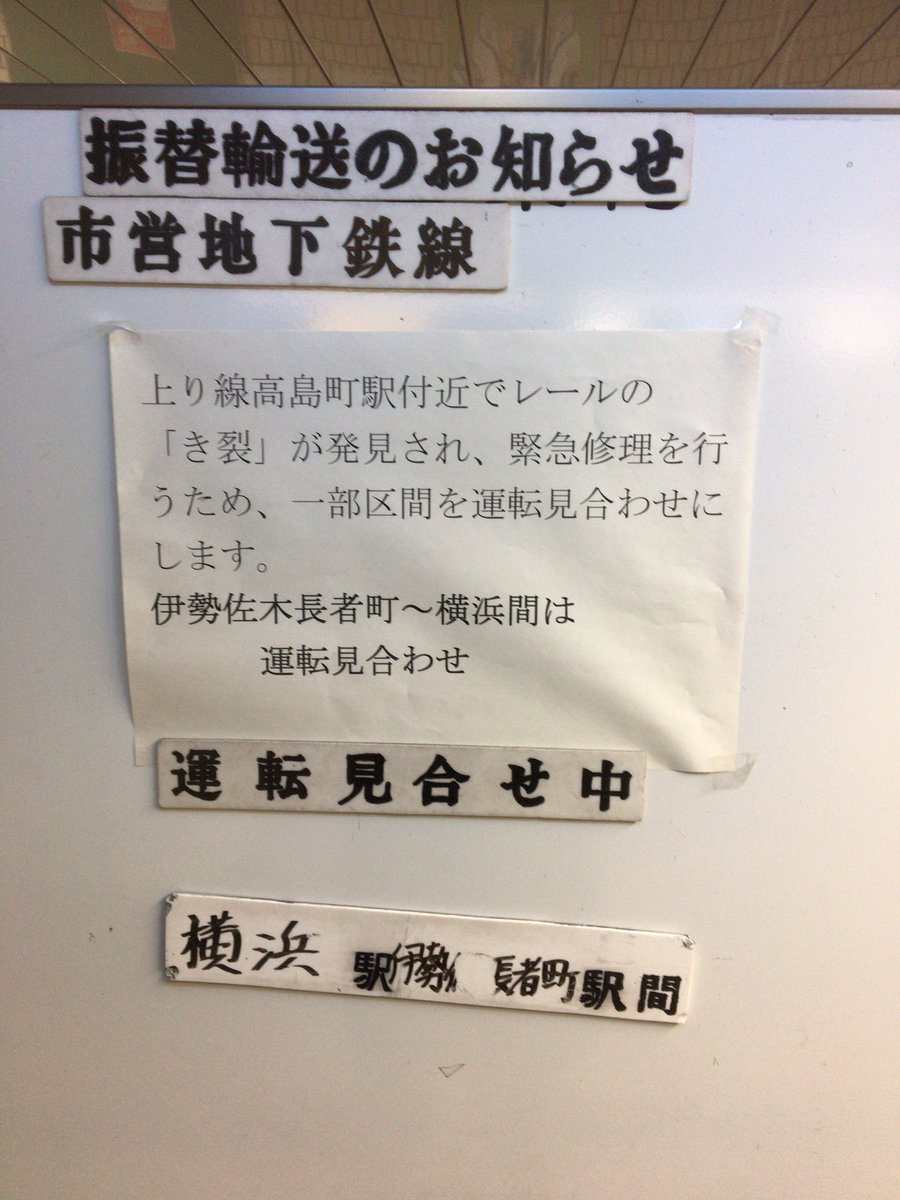 振替輸送のお知らせ
市営地下鉄線
上り線高島町駅付近でレールの
「き裂」が発見され、緊急修理を行
うため、一部区間を運転見合わせに
します。
伊勢佐木長者町～横浜間は
運転見合わせ
運転見合せ中
横浜駅伊勢 長者町駅間